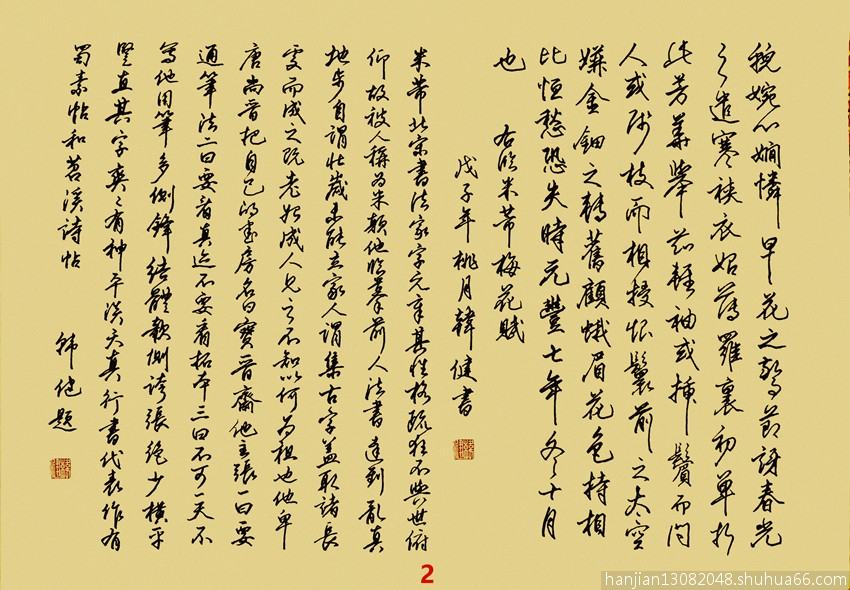 貌婉心嫻憐早花之驚節訝春光
之遣寒袂衣始薄羅裏初單折
此芳華舉茲輕袖或插鬢而問
人或殘枝而相授恨鬟前之太空
嫌金鈿之轉舊顧蛾眉花色持相
比恒愁恐失時元豐七年冬十月
也
右臨米芾梅花賦
戊子年桃月韓健書
米芾北宋書法家字元章其性格疏狂不與世俯
仰故被人稱為米顛他臨摹前人法書達到亂真
地步自謂壯歲未能立家人謂集古字蓋取諸長
處而成之既老始成人見之不知以何為祖也他卑
唐尚晉把自己的書房名曰寶晉齋他主張一曰要
通筆法二曰要看真迹不要看拓本三曰不可一天不
寫他用筆多側鋒結體欹側誇張絕少橫平
豎直其字爽爽有神平淡天真行書代表作有
蜀素帖和苕溪詩帖
韩健題
2
hanjian13082048.shuhua66.com